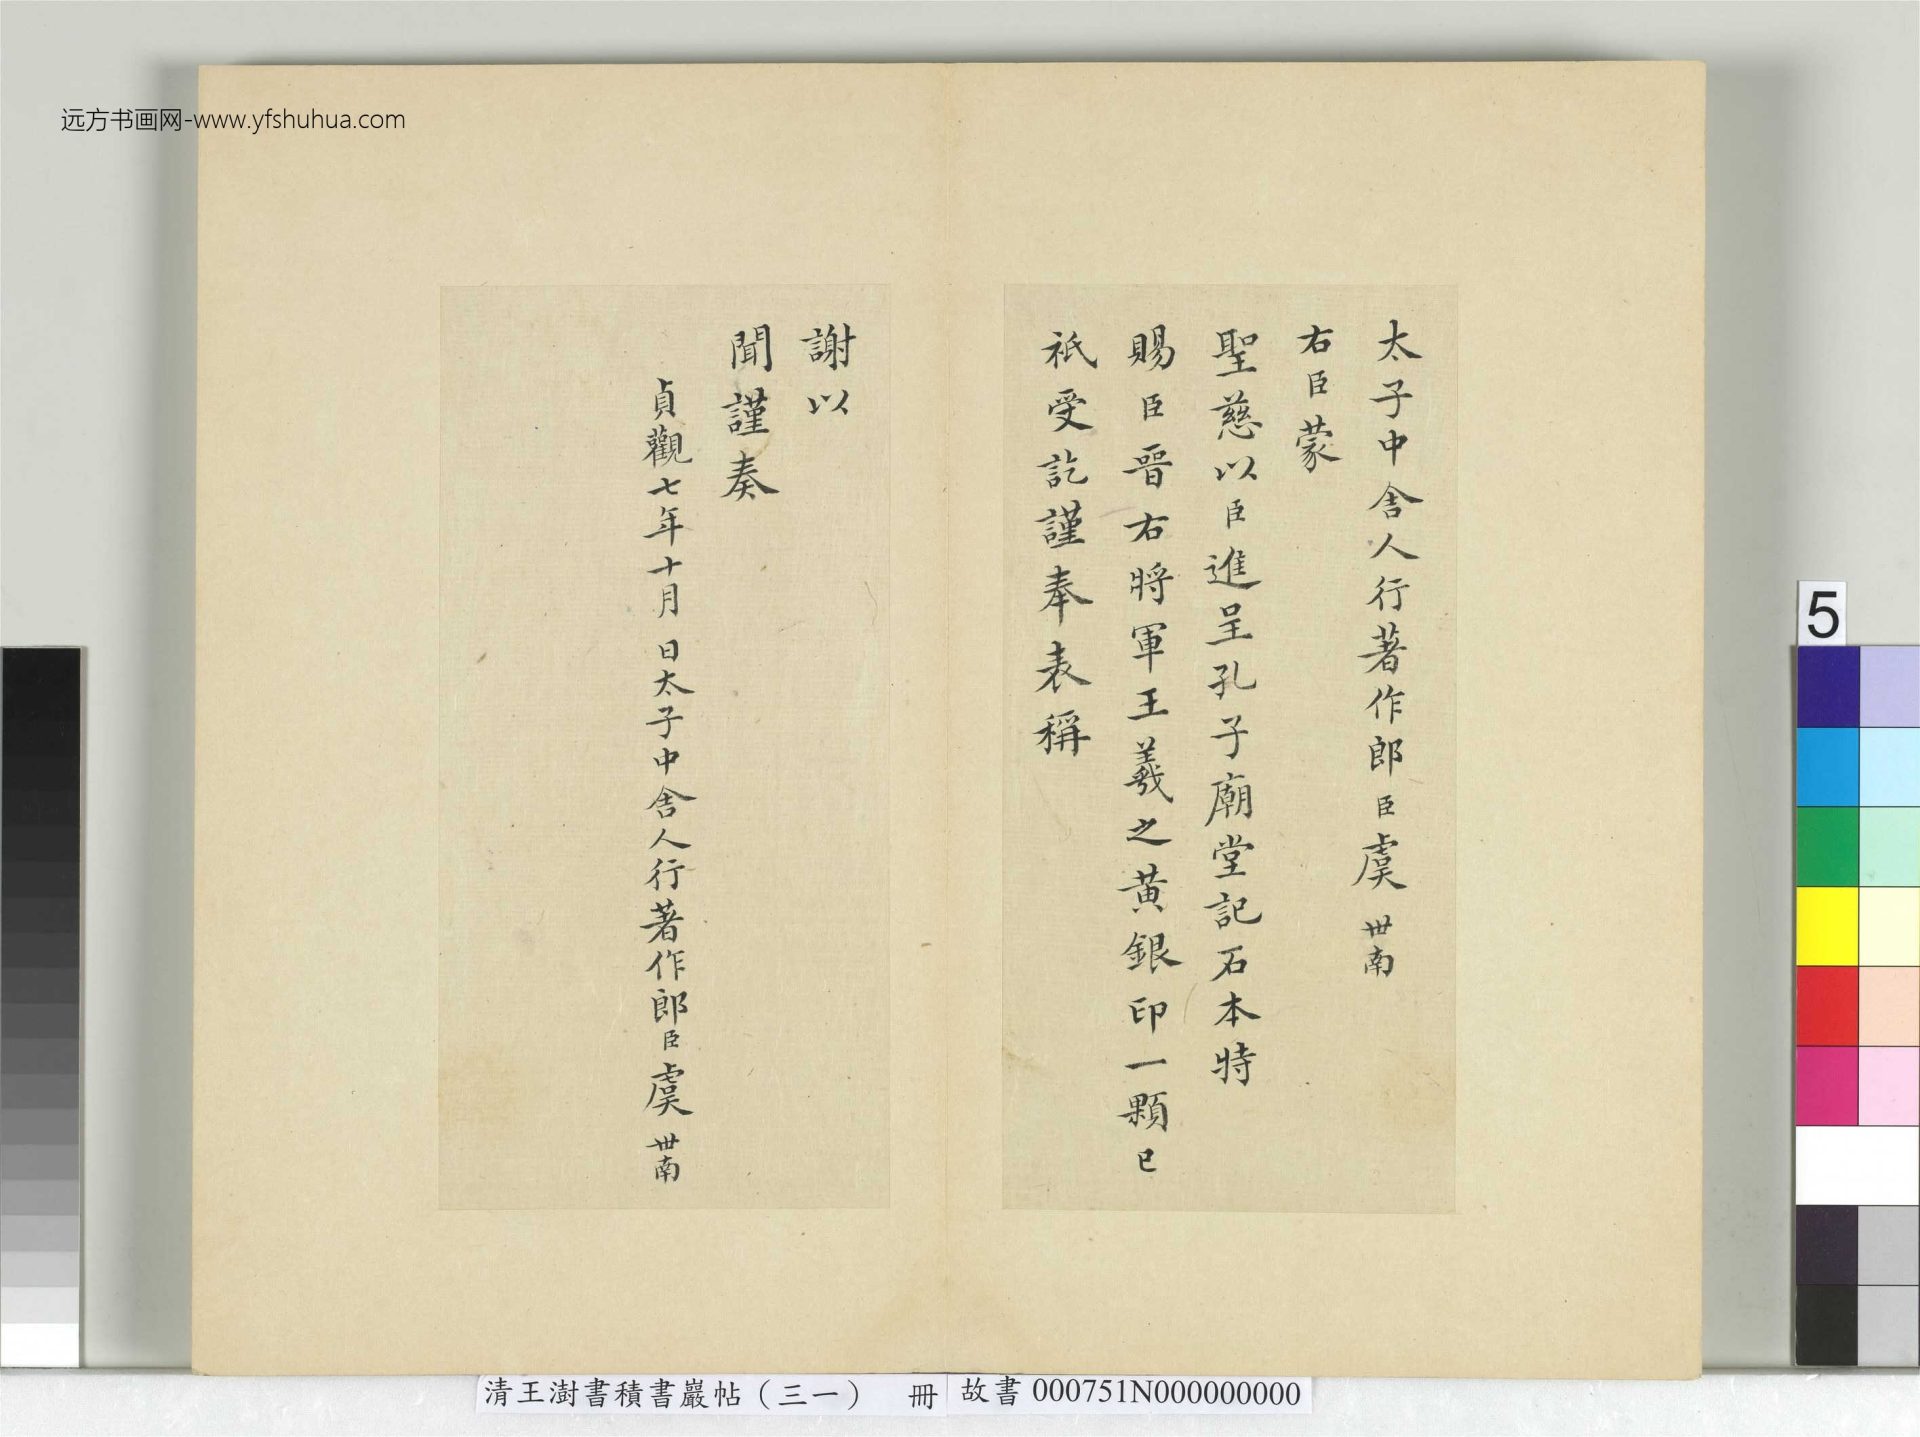 远方书画网-www.yfshuhua.com
太子中舎人行著作郎臣虞世南
右臣蒙
聖慈以臣進呈孔子廟堂記石本特
賜臣晉右將軍王羲之黃銀印一顆已
祇受訖謹奉表稱
謝以
聞謹奏
貞觀七年十月 日太子中舎人行著作郎臣虞世南
5
清王澍書積書巖帖（三一） 冊 故書 000751N000000000